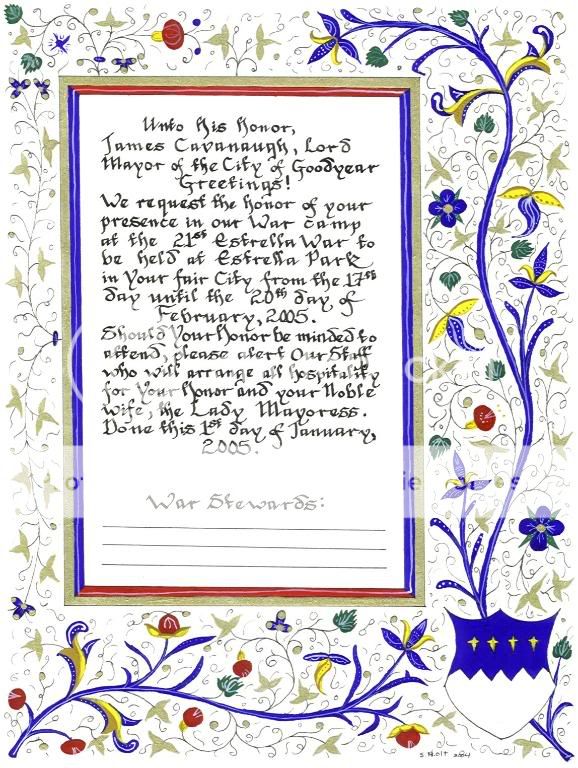 Unto his honor,
James Cavanaugh, Lord
Mayor of the City of Goodyear
Greetings!
We request the honor of your
presence in our War camp
at the 21st Estrella War to
be held at Estrella Park
in Your fair City from the 17th
day until the 20th day of
February, 2005.
Should Your Honor be minded to
attend, please alert Our Staff
who will arrange all hospitality
for Your Honor and your Noble
Wife, the Lady Mayoress.
Done this 1st day of January,
2005.
War Stewards:
S. Holt 2004